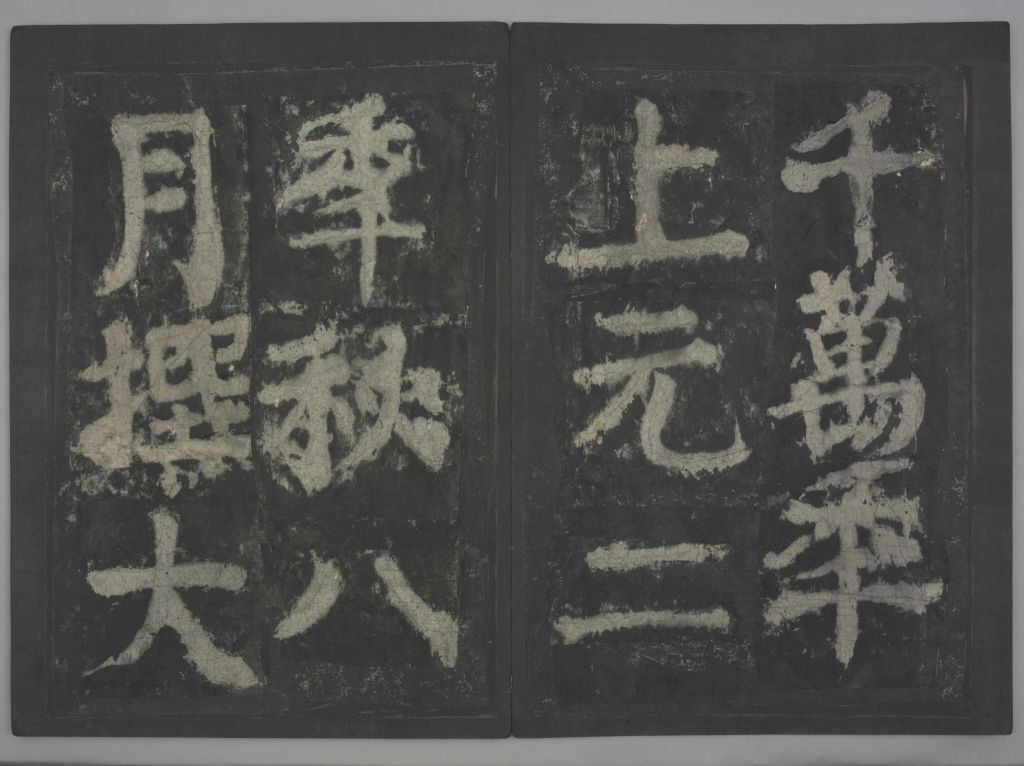 千萬年
上元二
年秋八
月撰大